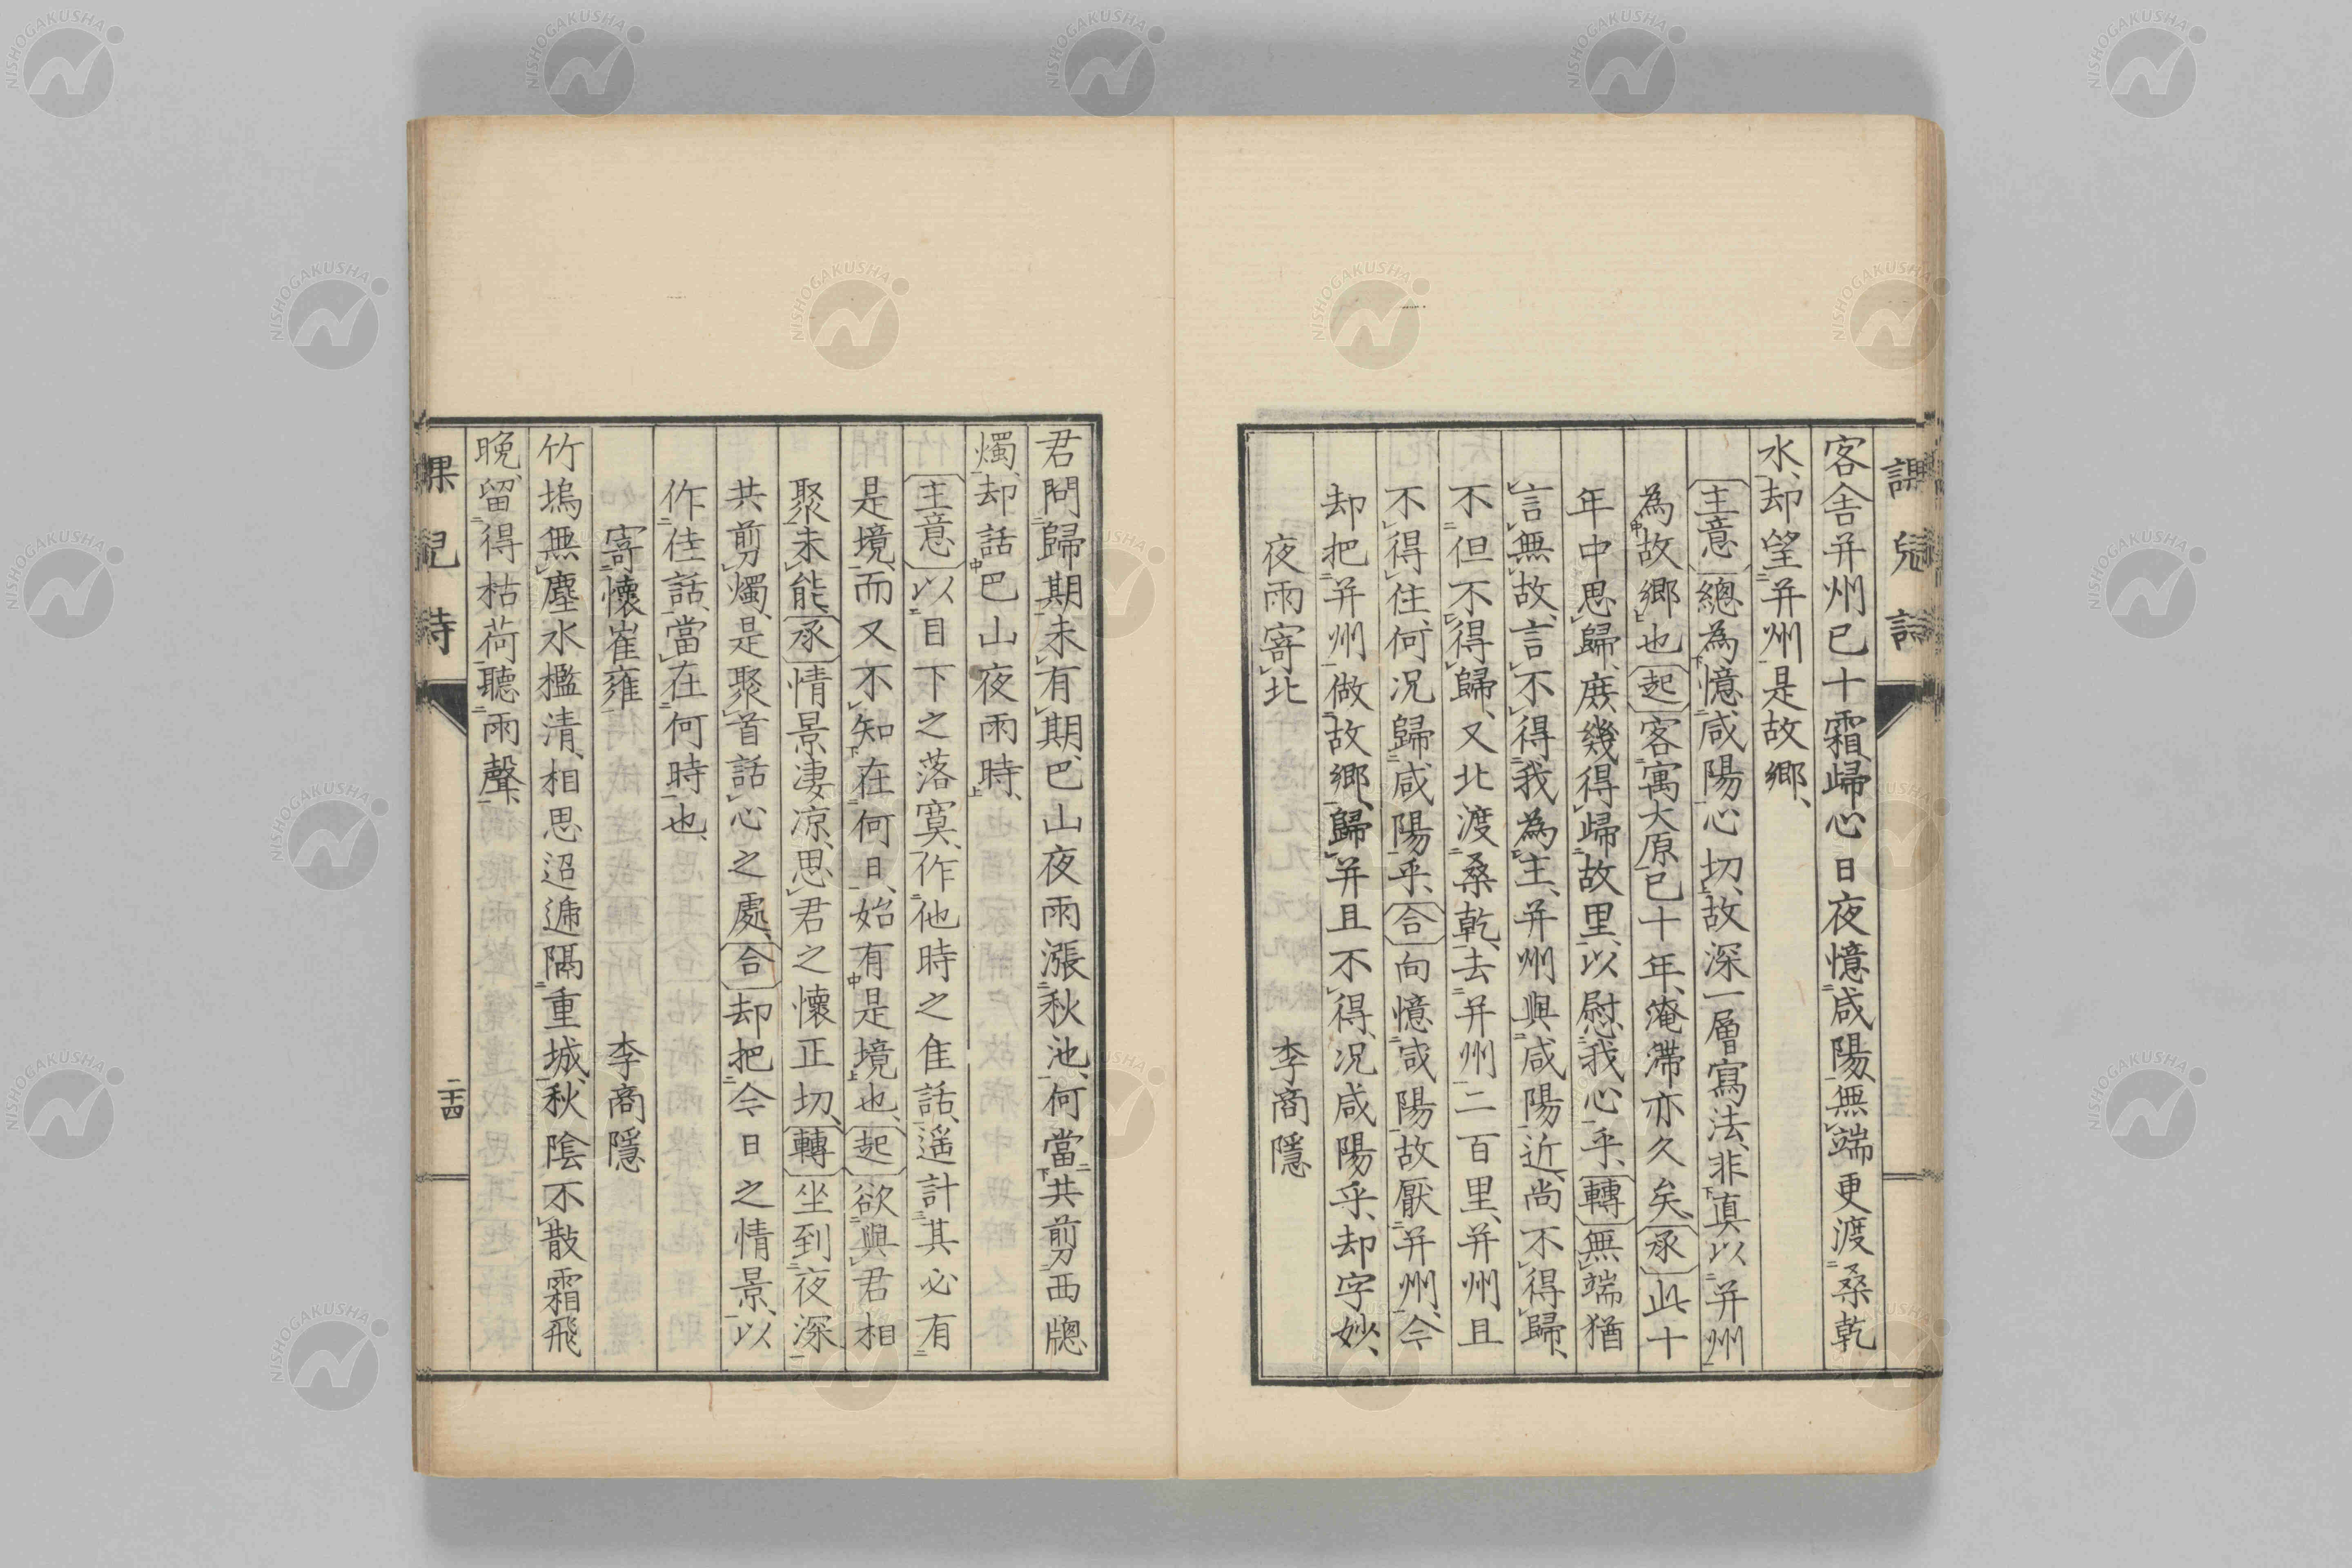 課兒詩
客舎并州已十霜歸心日夜憶咸陽無端更渡桑乾
水、却望并州是故郷、
主意總為憶咸陽心切、故深一層寫法、非真以并州
為故郷也起客寓大原已十年、淹滞亦久矣、承此十
年中思歸、庶幾得歸故里、以慰我心乎、轉無端猶
言無故、言不得我為主、并州與咸陽近、尚不得歸、
不但不得歸、又北渡桑乾、去并州二百里、并州且
不得住、何况歸咸陽乎、合向憶咸陽、故厭并州、今
却把并州做故郷、歸并且不得、况咸陽乎、却字妙、
夜雨寄北　李商隱
君問歸期未有期、巴山夜雨漲秋池、何當共剪西牕
燭、却話巴山夜雨時、
主意以目下之落寞、作他時之佳話、遥計其必有
是境、而又不知在何日、始有是境也、起欲與君相
聚未能、承情景凄凉、思君之懐正切、轉坐到夜深
共剪燭、是聚首話心之處、合却把今日之情景、以
作佳話、當在何時也、
寄懷崔雍　李商隱
竹塢無塵水檻清、相思迢遞隔重城、秋陰不散霜飛
晩、留得枯荷聽雨聲、
課兒詩
二十四
NISHOGAKUSHA